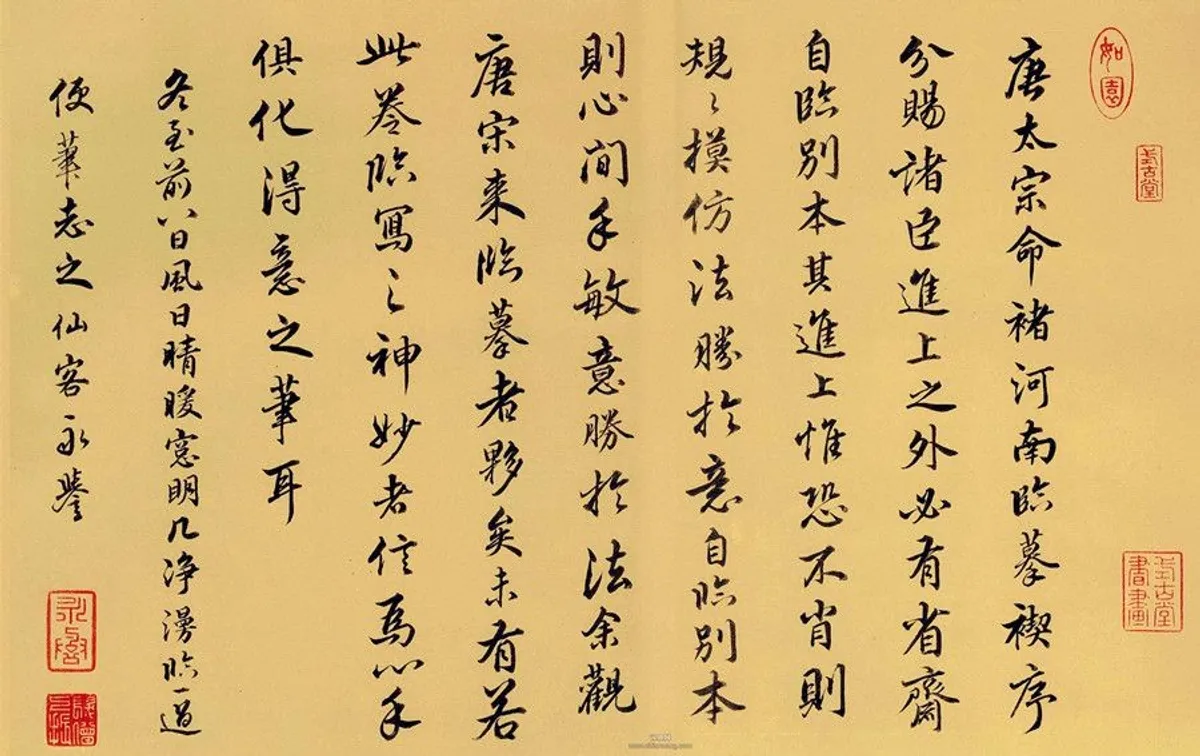 如園
式古堂
式古堂書畫
唐太宗命褚河南臨摹禊序
分賜諸臣進上之外必有省齋
自臨別本其進上惟恐不肖則
規〻摸仿法勝於意自臨別本
則心閒手敏意勝於法余觀
唐宋來臨摹者夥矣未有若
此卷臨寫之神妙者信焉心手
俱化得意之筆耳
冬至前八日風日晴暖窓明几净漫臨一過
便筆志之仙客永譽